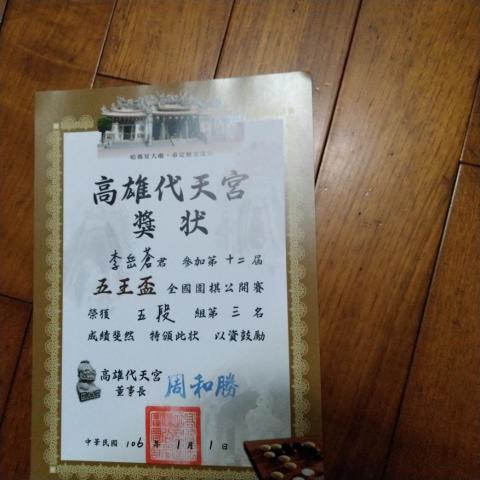 高雄代天宮
獎狀
李岳蒼君 參加第十二屆
五王盃 全國圍棋公開賽
榮獲 五段 組第三名
成績斐然 特頒此狀 以資鼓勵
高雄代天宮
董事長 周和勝
中華民國 106 年 1 月 1 日